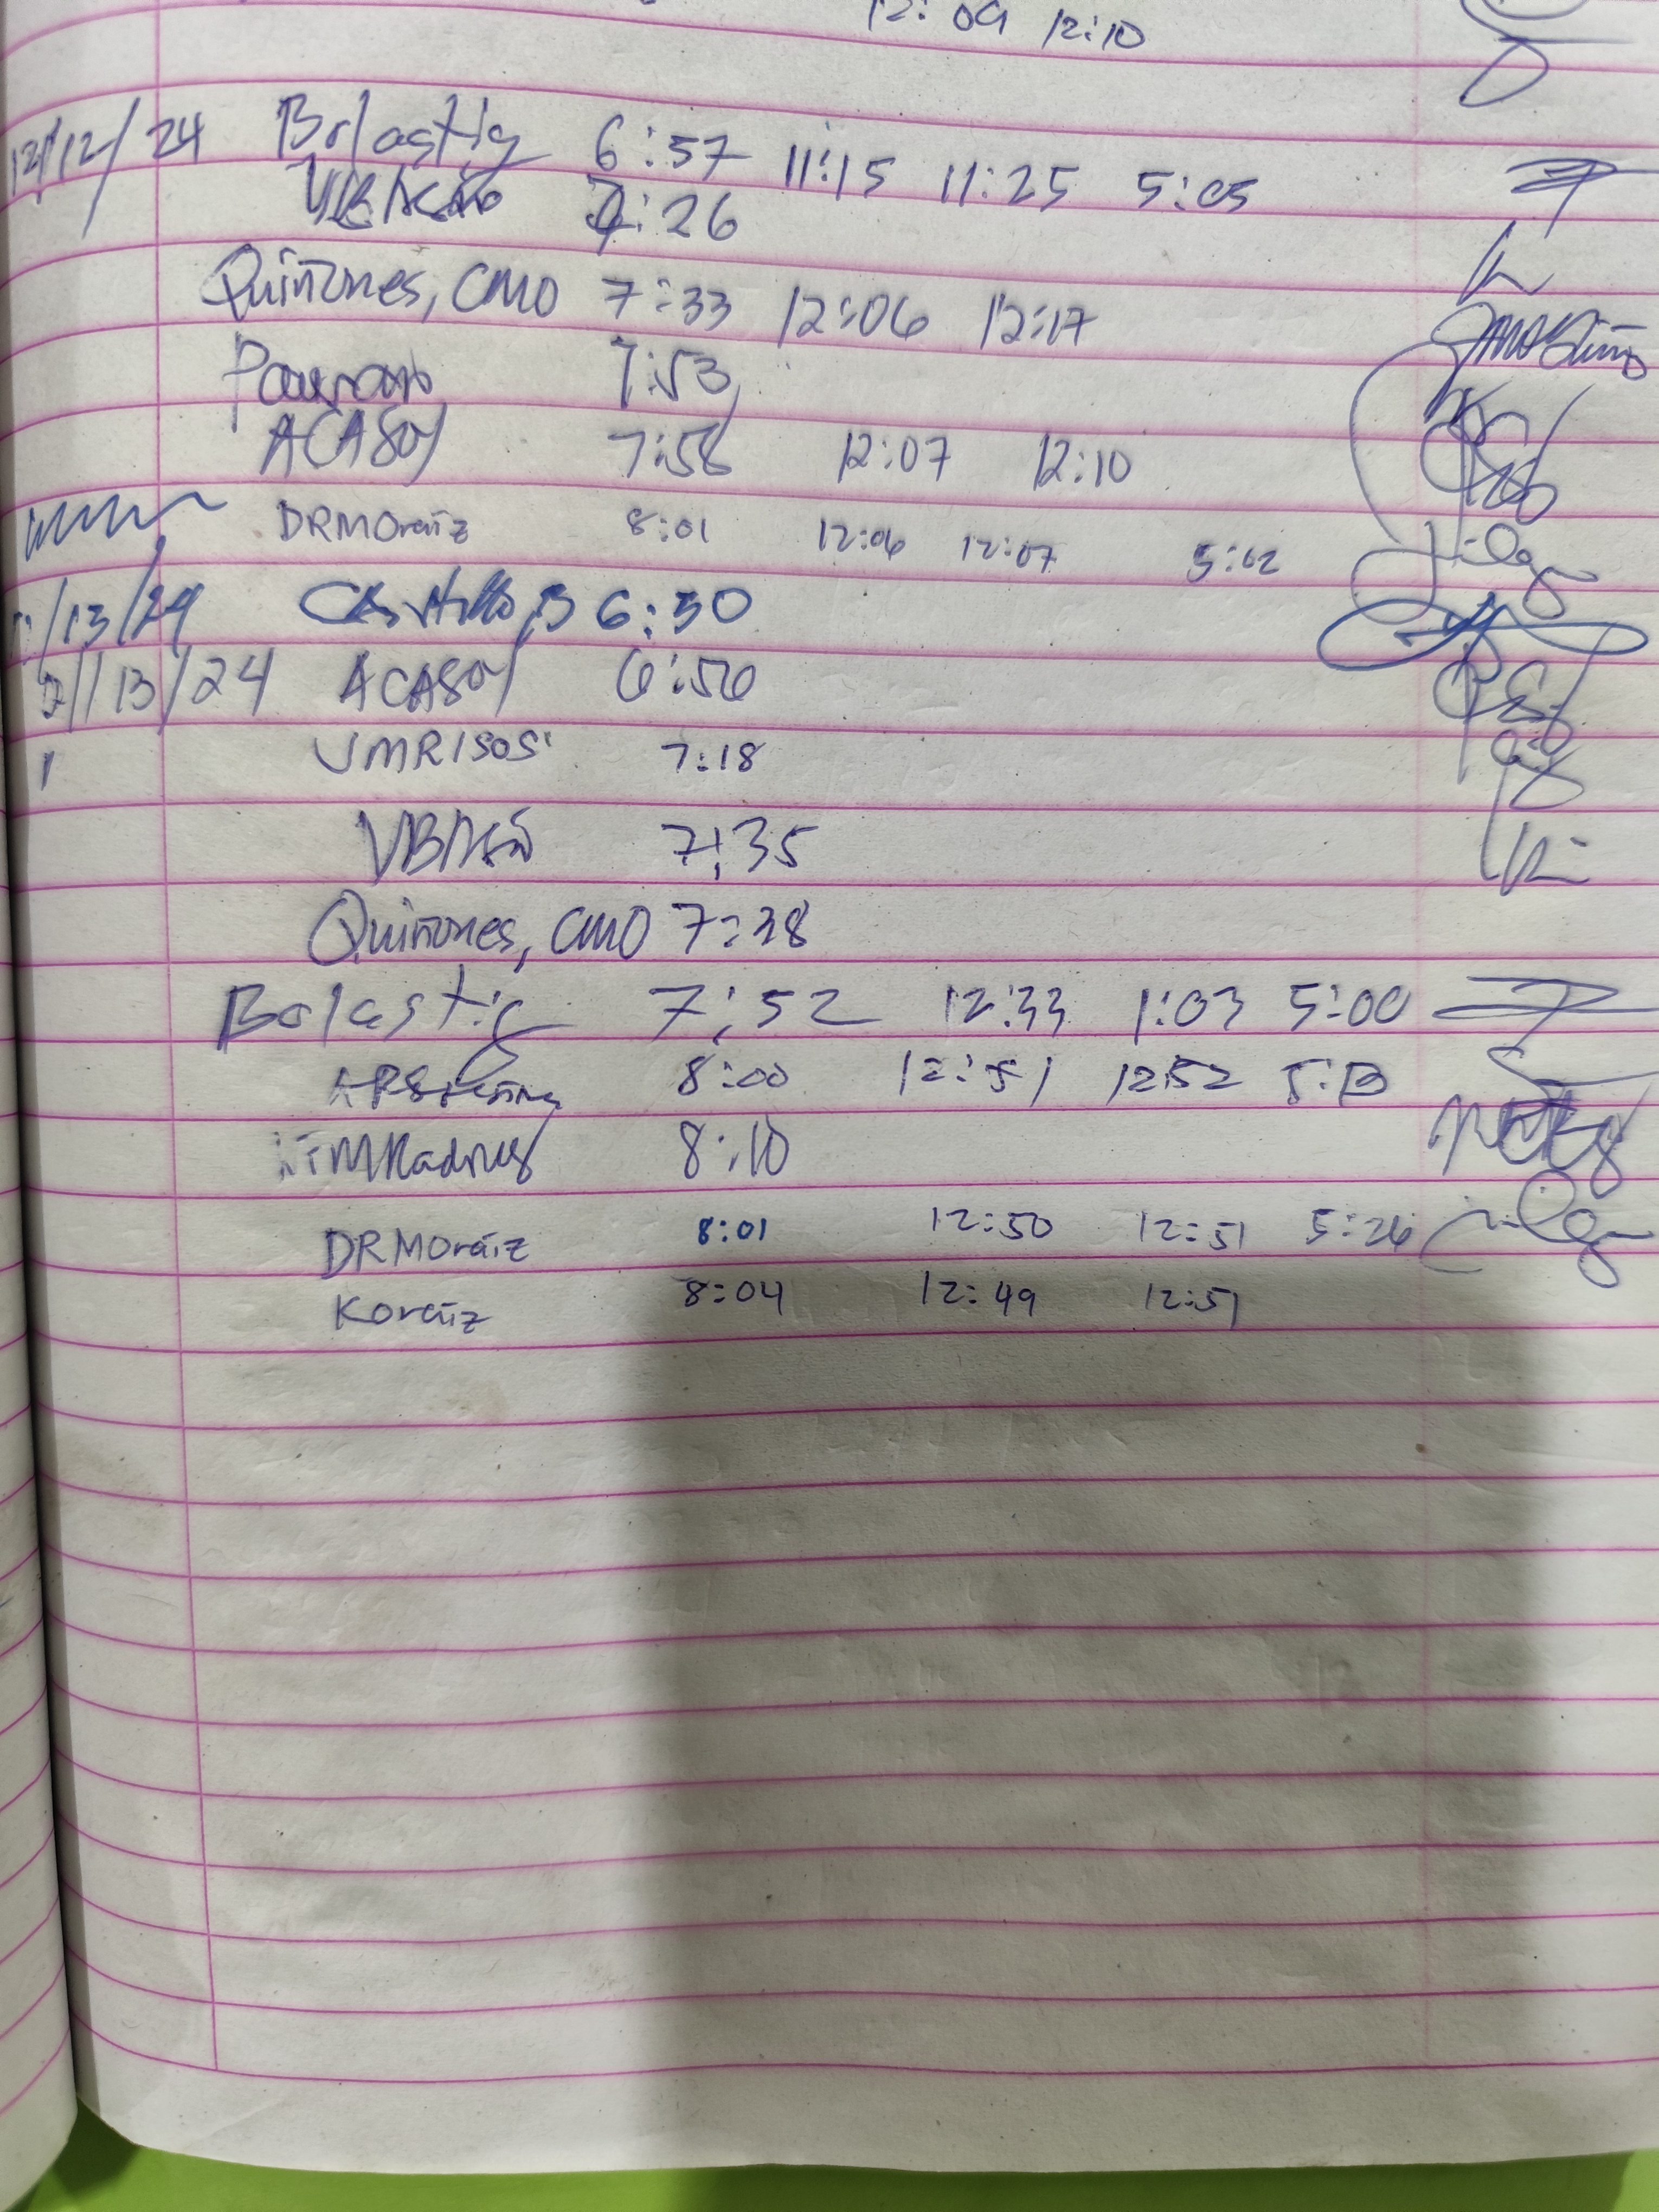 12:09 12:10
12/12/24 Bolastig 6:57 11:15 11:25 5:05
7:26
Quiñones, CMO 7:33 12:06 12:17
7:53
ACASOY 7:58 12:07 12:10
DRMOraiz 8:01 12:06 12:07 5:02
/13/24 Castillo, B 6:30
/13/24 ACASOY 6:56
7:18
7:35
Quiñones, CMO 7:38
Bolastig 7:52 12:33 1:03 5:00
8:00 12:51 12:52 5:13
8:10
DRMOraiz 8:01 12:50 12:51 5:26
Koraiz 8:04 12:49 12:51